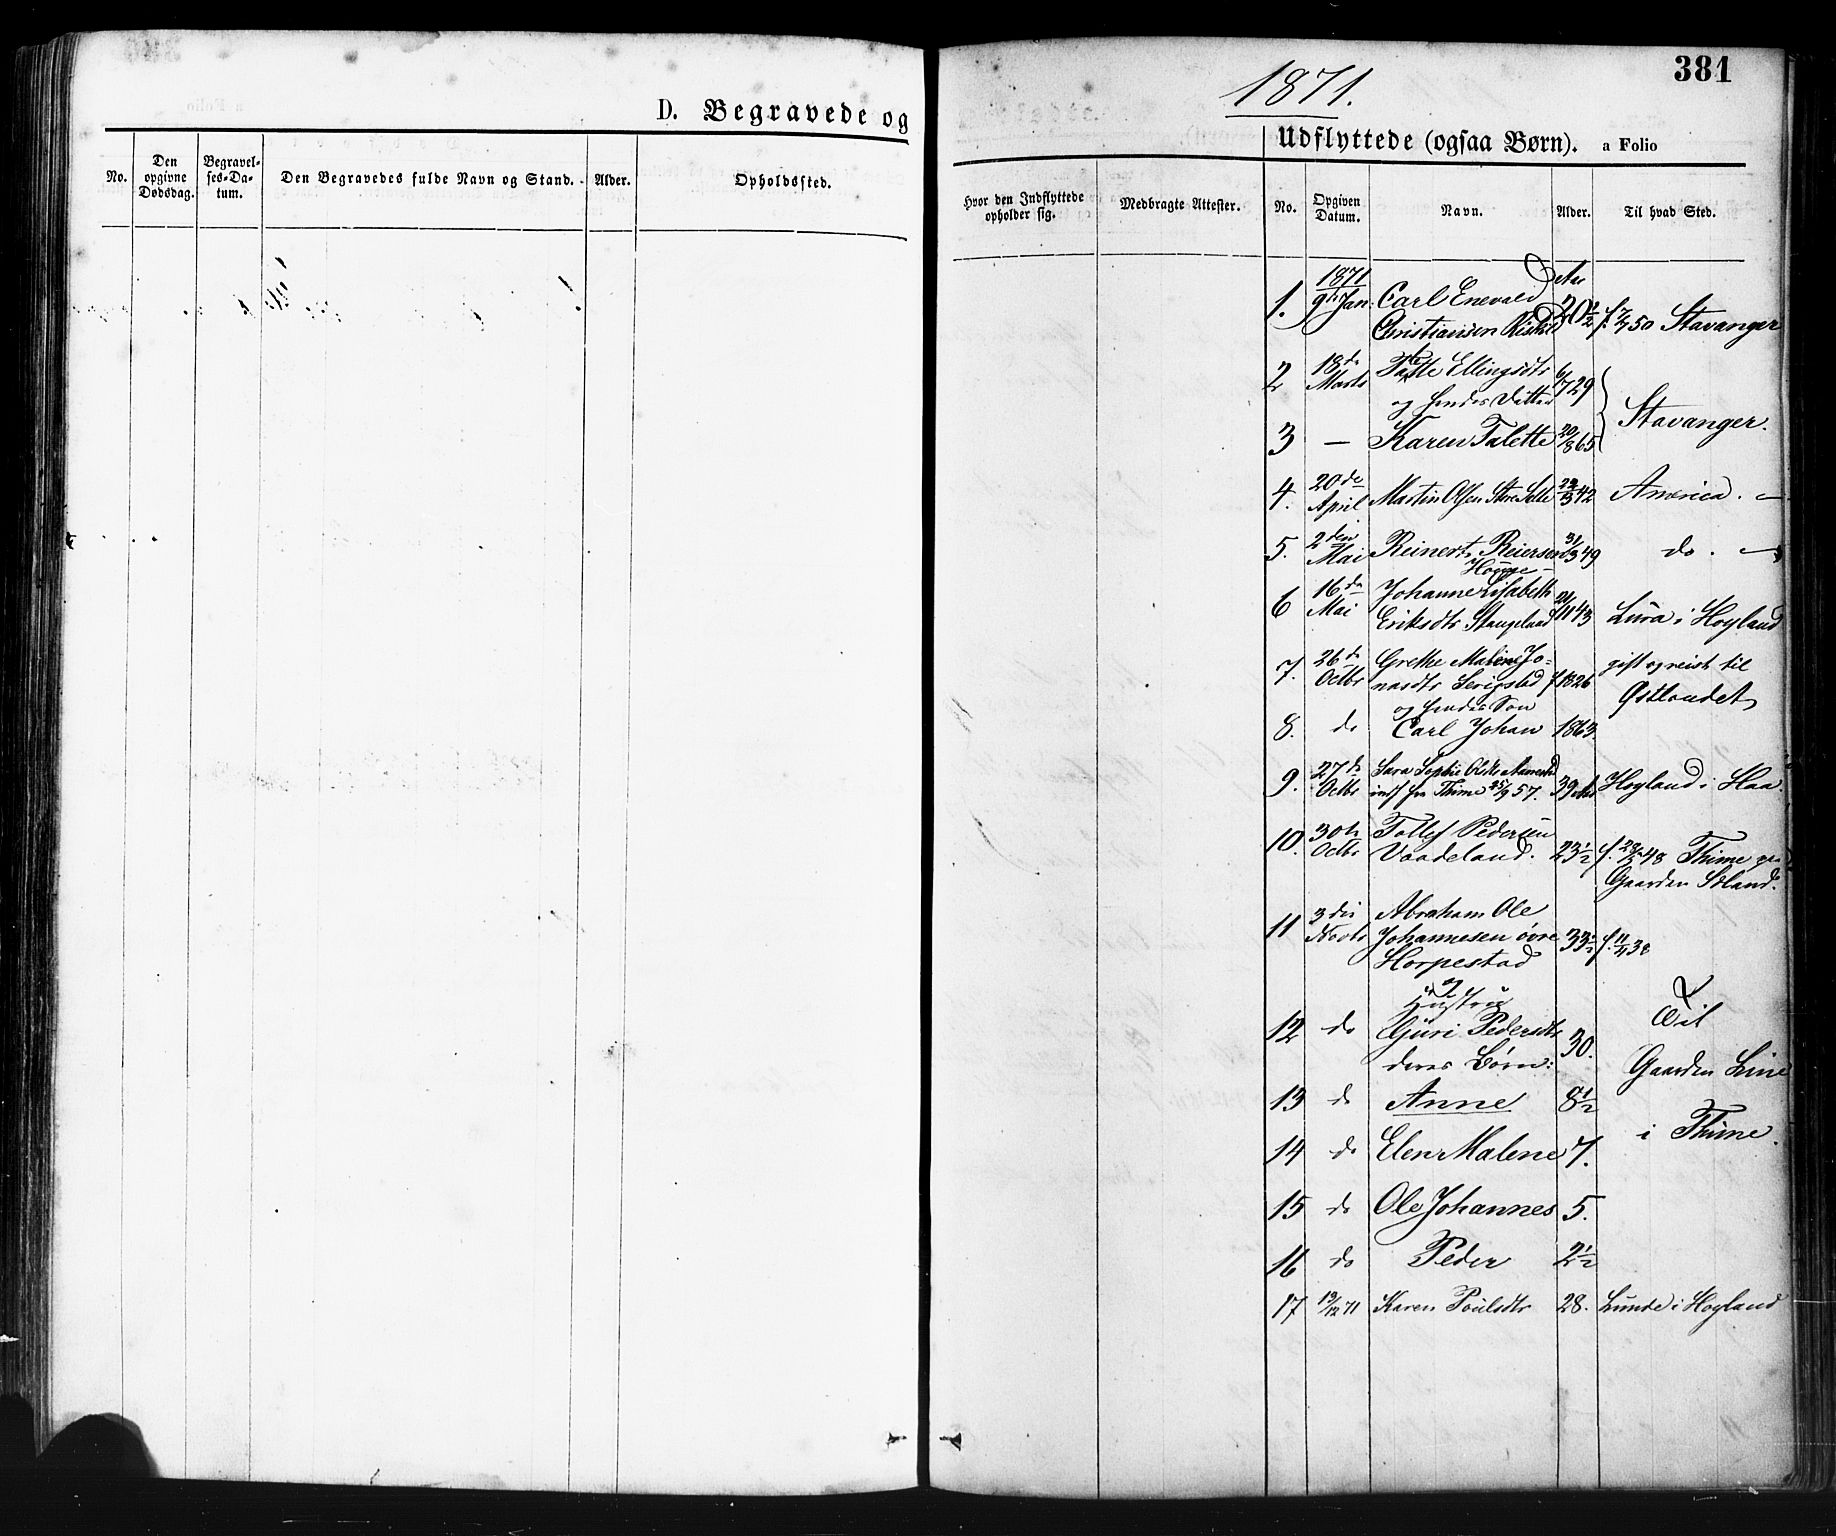 D. Begravede og
No.
Den opgivne Dødsdag.
Begravelses-Datum.
Den Begravedes fulde Navn og Stand.
Alder.
Opholdssted.
381
1871.
Udflyttede (ogsaa Børn). a Folio
Hvor den Indflyttede opholder sig.
Medbragte Attester.
No.
Opgiven Datum.
Navn.
Alder.
Til hvad Sted.
1871
Aar
1. 9de Jan: Carl Enevald
Christiansen 20 1/2 f. 7/7 50 Stavanger
2 18de Marts Ellingsdtr 6/7 29
og hendes Datter
Stavanger.
3 — Karen Talette 20/8 65
4. 20de April Martin Olsen 22/3 42 America. —
5. 2den Mai Reinert Reiersen 31/3 49 do. —
Houge —
6 16de Mai Johanne Lisabeth
Eriksdtr Stangeland 21/11 43 Lura i Hoyland
7. 26de Octbr Grethe Malene Jo=
nasdtr Serigstad f 1826 gift og reist til
og hendes Søn
Østlandet
8. do Carl Johan 1863.
9. 27de Octbr Sara Sophie Olsdtr
indf fra Thime 25/9 57. 39 Aar Hogland i Haa.
10. 30te Octbr Tollef Pedersen
Vaadeland. 23 1/2 f. 48 Thime paa
Gaarden
11 3die Novbr Abraham Ole
Johannesen øvre 33 1/2 f. 11/4 38
Horpestad
og
Hustrue
12 do Guri Pedersdtr 30. Til
deres Børn: Gaarden Line
13 do Anne 8 1/2
i Thime.
14 do Elen Malene 7.
15 do Ole Johannes 5.
16 do Peder 2 1/2
17 19/12 71 Karen Poulsdtr 28. Lunde i Hoyland